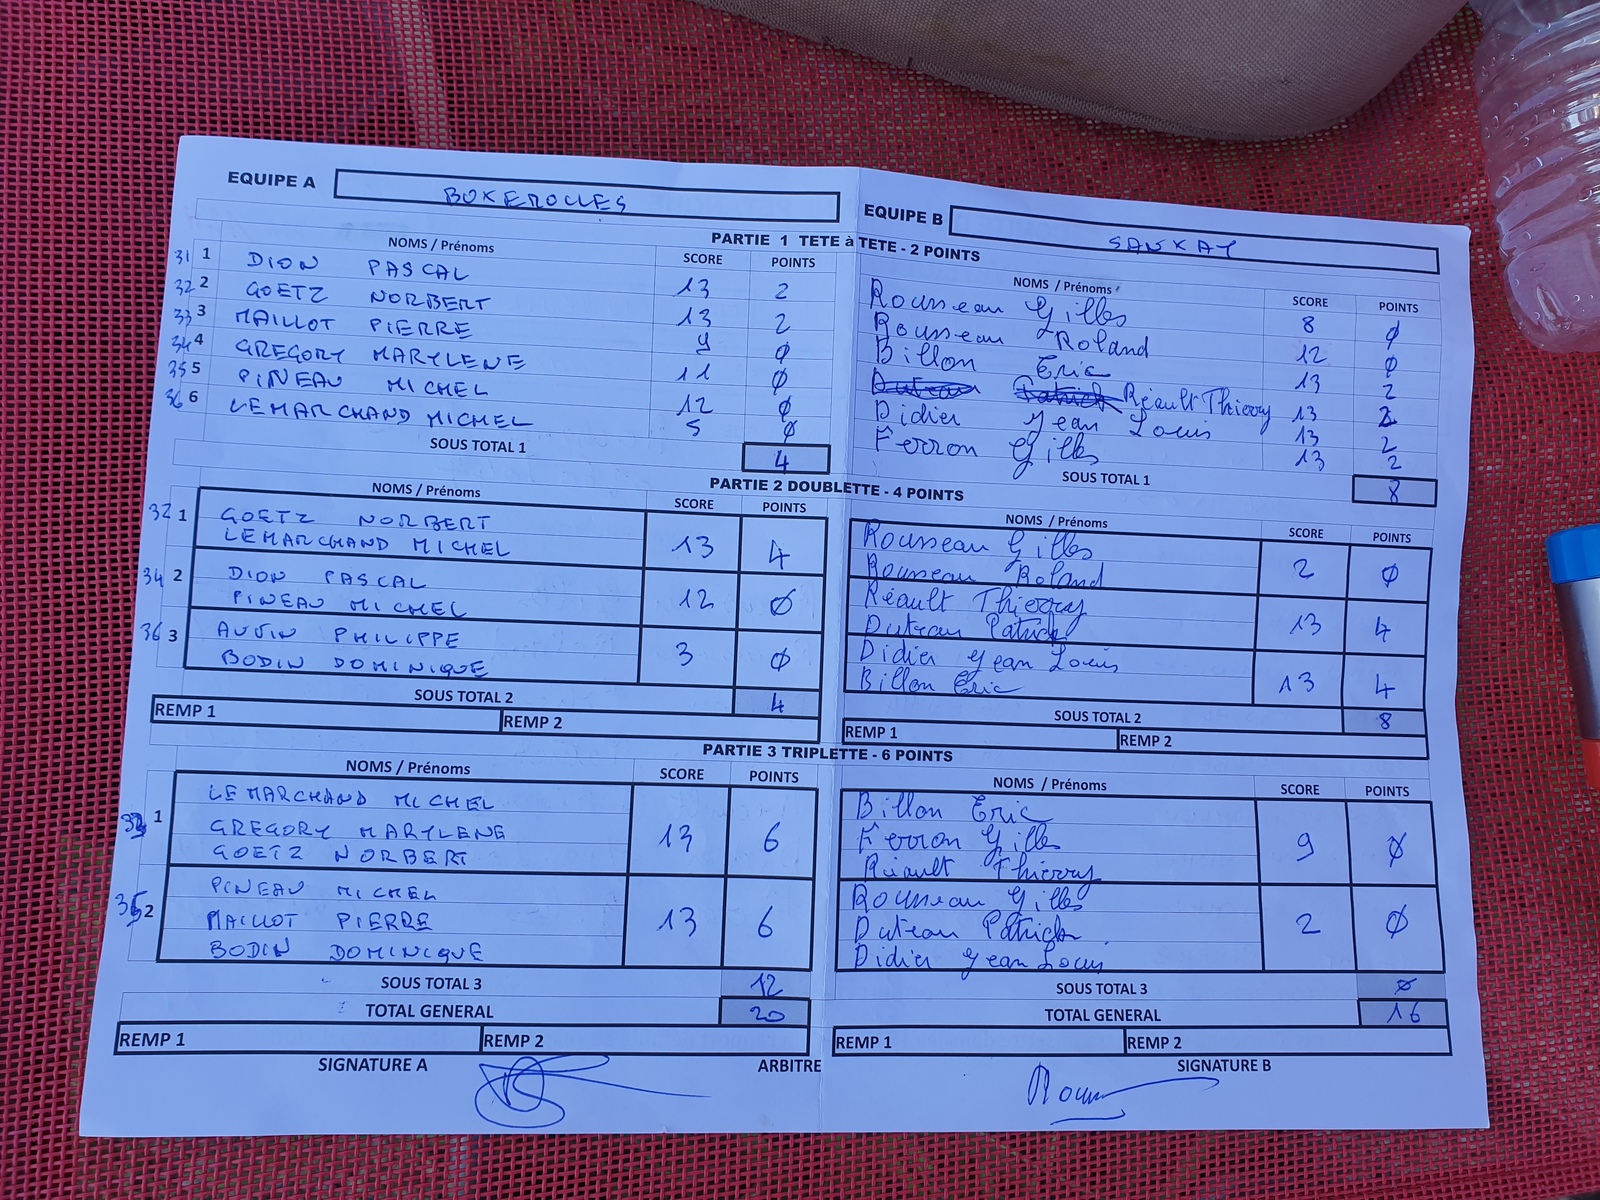 EQUIPE A BOXEROLLES EQUIPE B SANXAY
PARTIE 1 TETE à TETE - 2 POINTS
NOMS / Prénoms SCORE POINTS NOMS / Prénoms SCORE POINTS
31 1 DION PASCAL 13 2 Rousseau Gilles 8 0
32 2 GOETZ NORBERT 13 2 Rousseau Roland 12 0
33 3 MAILLOT PIERRE 9 0 Billon Eric 13 2
34 4 GREGORY MARYLENE 11 0 Réault Thierry 13 2
35 5 PINEAU MICHEL 12 0 Didier Jean Louis 13 2
36 6 LEMARCHAND MICHEL 5 0 Ferron Gilles 13 2
SOUS TOTAL 1 4 SOUS TOTAL 1 8
PARTIE 2 DOUBLETTE - 4 POINTS
NOMS / Prénoms SCORE POINTS NOMS / Prénoms SCORE POINTS
32 1 GOETZ NORBERT 13 4 Rousseau Gilles 2 0
LEMARCHAND MICHEL Rousseau Roland
34 2 DION PASCAL 12 0 Réault Thierry 13 4
PINEAU MICHEL Duteau Patrick
36 3 AUVIN PHILIPPE 3 0 Didier Jean Louis 13 4
BODIN DOMINIQUE Billon Eric
SOUS TOTAL 2 4 SOUS TOTAL 2 8
REMP 1 REMP 2 REMP 1 REMP 2
PARTIE 3 TRIPLETTE - 6 POINTS
NOMS / Prénoms SCORE POINTS NOMS / Prénoms SCORE POINTS
1 LEMARCHAND MICHEL 13 6 Billon Eric 9 0
GREGORY MARYLENE Ferron Gilles
GOETZ NORBERT Réault Thierry
2 PINEAU MICHEL 13 6 Rousseau Gilles 2 0
MAILLOT PIERRE Duteau Patrick
BODIN DOMINIQUE Didier Jean Louis
SOUS TOTAL 3 12 SOUS TOTAL 3 0
TOTAL GENERAL 20 TOTAL GENERAL 16
REMP 1 REMP 2 REMP 1 REMP 2
SIGNATURE A ARBITRE SIGNATURE B